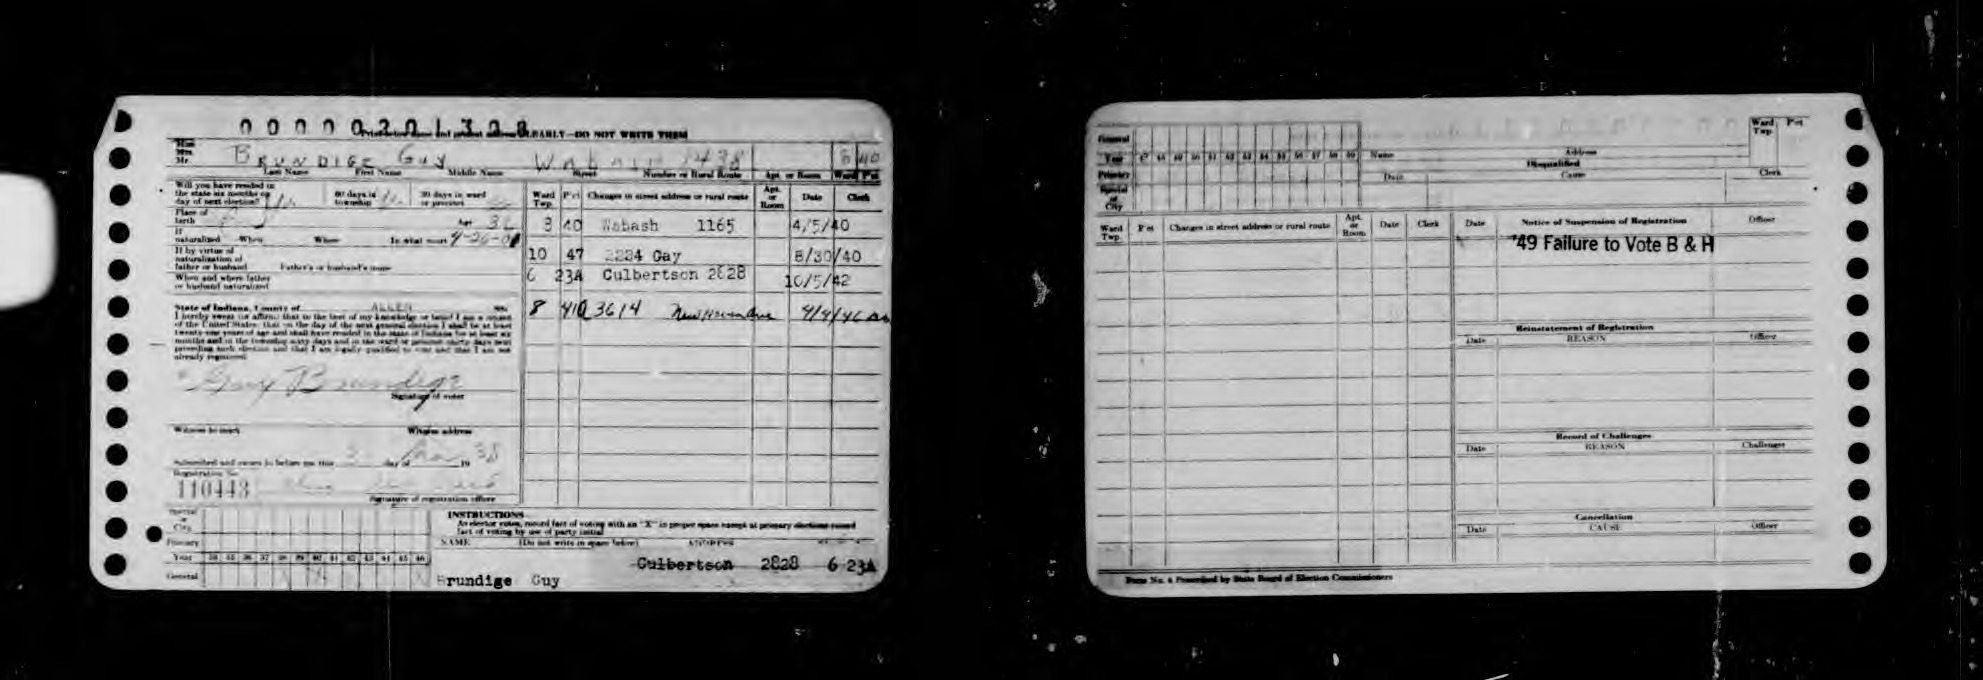 0 0 0 0 0 2 0 1 3 0 8
CLEARLY—DO NOT WRITE THEM
Miss
Mrs.
Mr. BRUNDIGE Guy Wabash 1438 8 40
Last Name First Name Middle Name Street Number or Rural Route Apt. or Room Ward Pct
Will you have resided in
the state six months on
day of next election?
60 days in
township
30 days in ward
or precinct
Place of
birth
Age 36
If
naturalized When Where In what court 4-26-01
If by virtue of
naturalization of
father or husband Father's or husband's name
When and where father
or husband naturalized
State of Indiana, County of ALLEN ss:
I hereby swear (or affirm) that to the best of my knowledge or belief I am a citizen
of the United States; that on the day of the next general election I shall be at least
twenty-one years of age and shall have resided in the state of Indiana for at least six
months and in the township sixty days and in the ward or precinct thirty days next
preceding such election and that I am legally qualified to vote and that I am not
already registered.
Guy Brundige
Signature of voter
Witness to mark Witness address
Subscribed and sworn to before me this 3 day of 19 38
Registration No.
110443
Signature of registration officer
Ward
Twp. P'ct Changes in street address or rural route Apt.
or
Room Date Clerk
8 40 Wabash 1165 4/5/40
10 47 2224 Gay 8/30/40
6 23A Culbertson 2828 10/5/42
8 41A 3614 New Haven Ave 4/4/46
Special
or
City
Primary
Year 34 35 36 37 38 39 40 41 42 43 44 45 46
General
INSTRUCTIONS
As elector votes, record fact of voting with an "X" in proper space except at primary elections record
fact of voting by use of party initial
NAME (Do not write in space below) ADDRESS
Culbertson 2828 6 23A
Brundige Guy
General
Year 48 49 50 51 52 53 54 55 56 57 58 59
Primary
Special
or
City
Name Address
Ward
Twp. P'ct
Disqualified
Date Cause Clerk
Ward
Twp. P'ct Changes in street address or rural route Apt.
or
Room Date Clerk
Date Notice of Suspension of Registration Officer
'49 Failure to Vote B & H
Reinstatement of Registration
Date REASON Officer
Record of Challenges
Date REASON Challenger
Cancellation
Date CAUSE Officer
Form No. 4 Prescribed by State Board of Election Commissioners